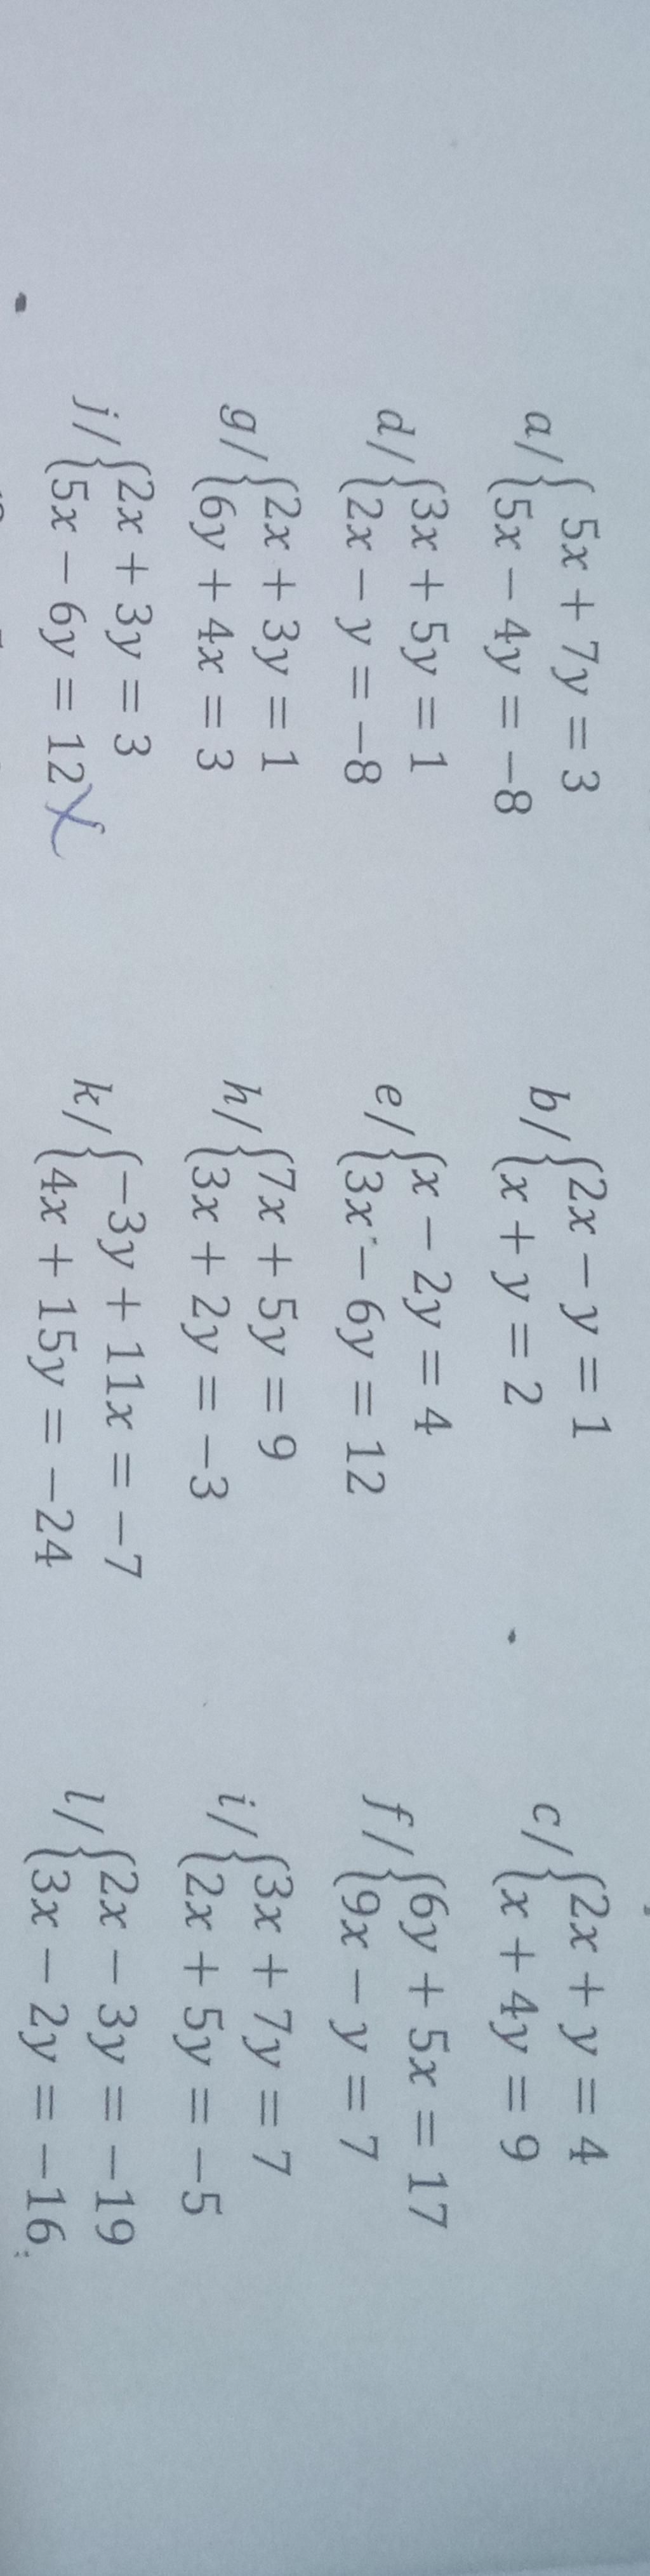 a/ { 5x + 7y = 3
5x − 4y = −8
b/ { 2x − y = 1
x + y = 2
c/ { 2x + y = 4
x + 4y = 9
d/ { 3x + 5y = 1
2x − y = −8
e/ { x − 2y = 4
3x − 6y = 12
f/ { 6y + 5x = 17
9x − y = 7
g/ { 2x + 3y = 1
6y + 4x = 3
h/ { 7x + 5y = 9
3x + 2y = −3
i/ { 3x + 7y = 7
2x + 5y = −5
j/ { 2x + 3y = 3
5x − 6y = 12
k/ { −3y + 11x = −7
4x + 15y = −24
l/ { 2x − 3y = −19
3x − 2y = −16